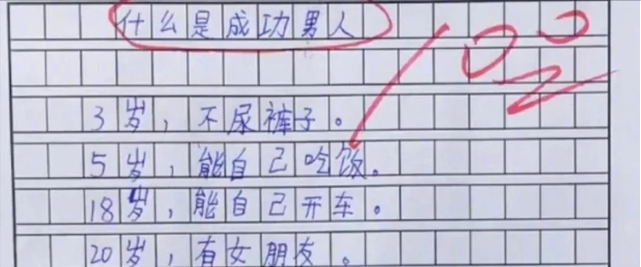 什么是成功男人
3岁，不尿裤子。
5岁，能自己吃饭。
18岁，能自己开车。
20岁，有女朋友。